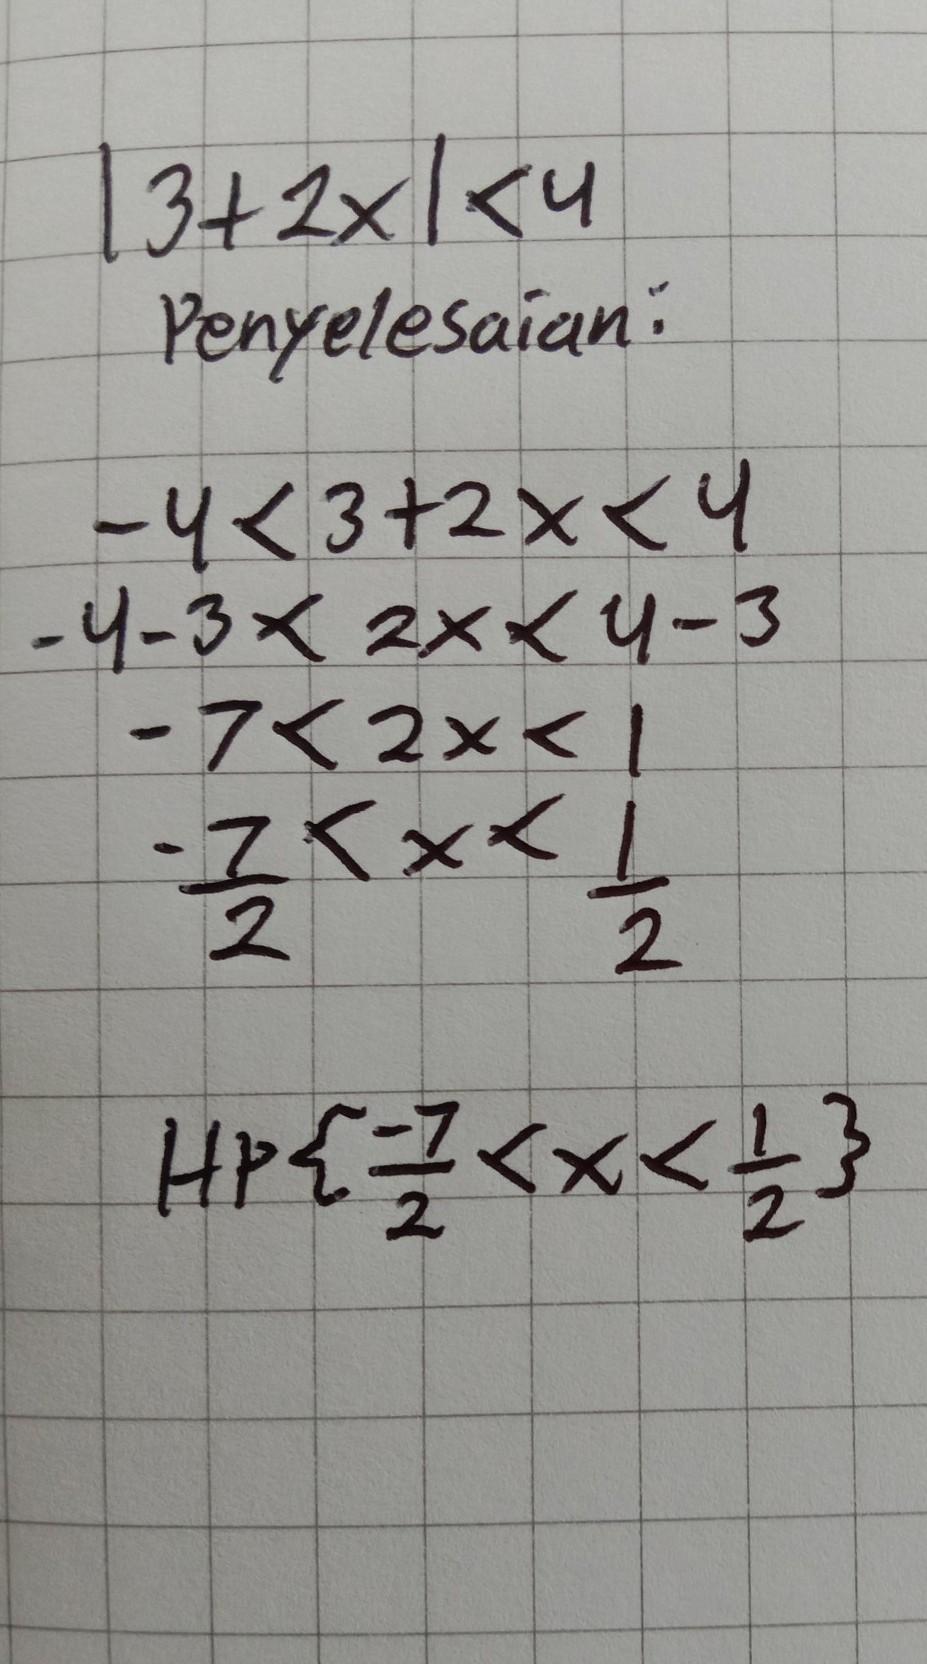 |3+2x|<4
Penyelesaian:
-4<3+2x<4
-4-3<2x<4-3
-7<2x<1
-7/2<x<1/2
HP{-7/2<x<1/2}